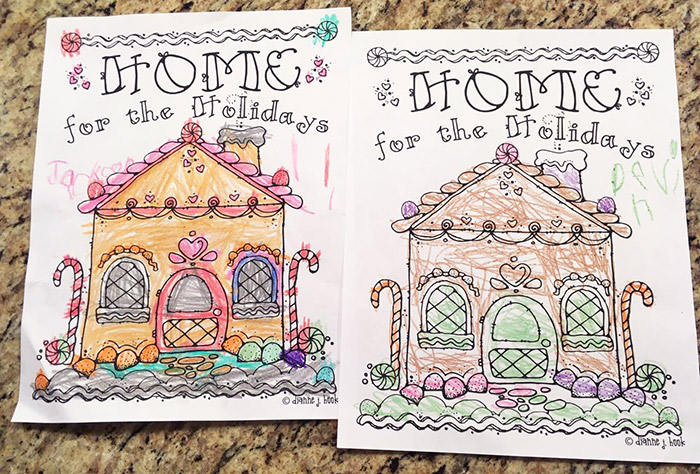 HOME
for the Holidays
© dianne j. hook
HOME
for the Holidays
Devi
n
© dianne j. hook